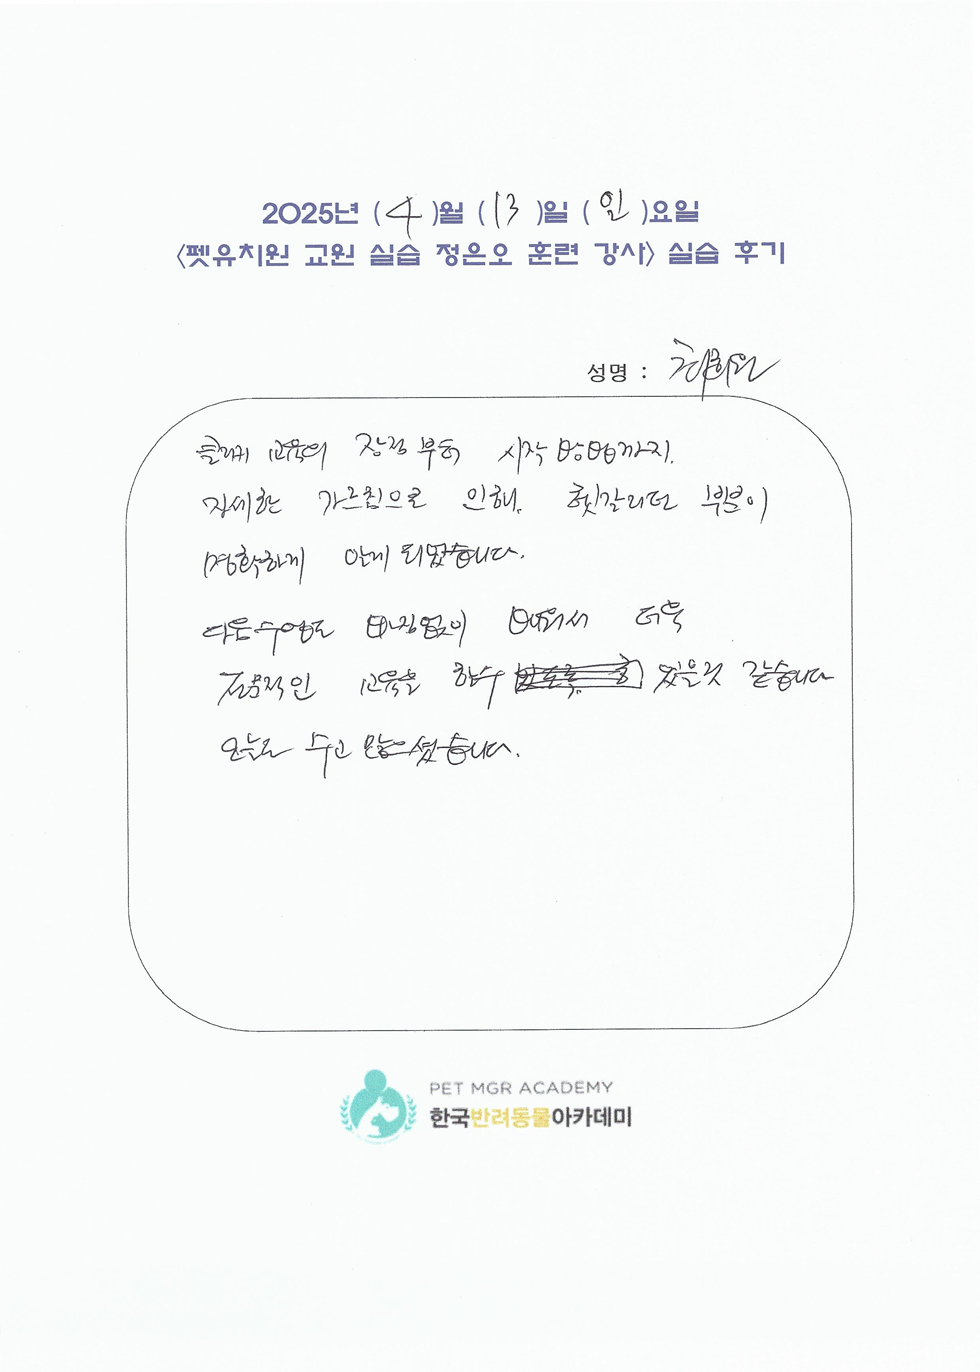 2025년 (4)월 (13)일 (일)요일
<펫유치원 교원 실습 정은오 훈련 강사> 실습 후기
성명 : 최희원
클리커 교육의 장점 부터 시작 방법까지.
자세한 가르침으로 인해. 헷갈리던 부분이
명확하게 알게 되었습니다.
다음수업도 빠짐없이 배워서 더욱
전문적인 교육을 할수 있을것 같습니다
오늘도 수고 많으셨습니다.
PET MGR ACADEMY
한국반려동물아카데미